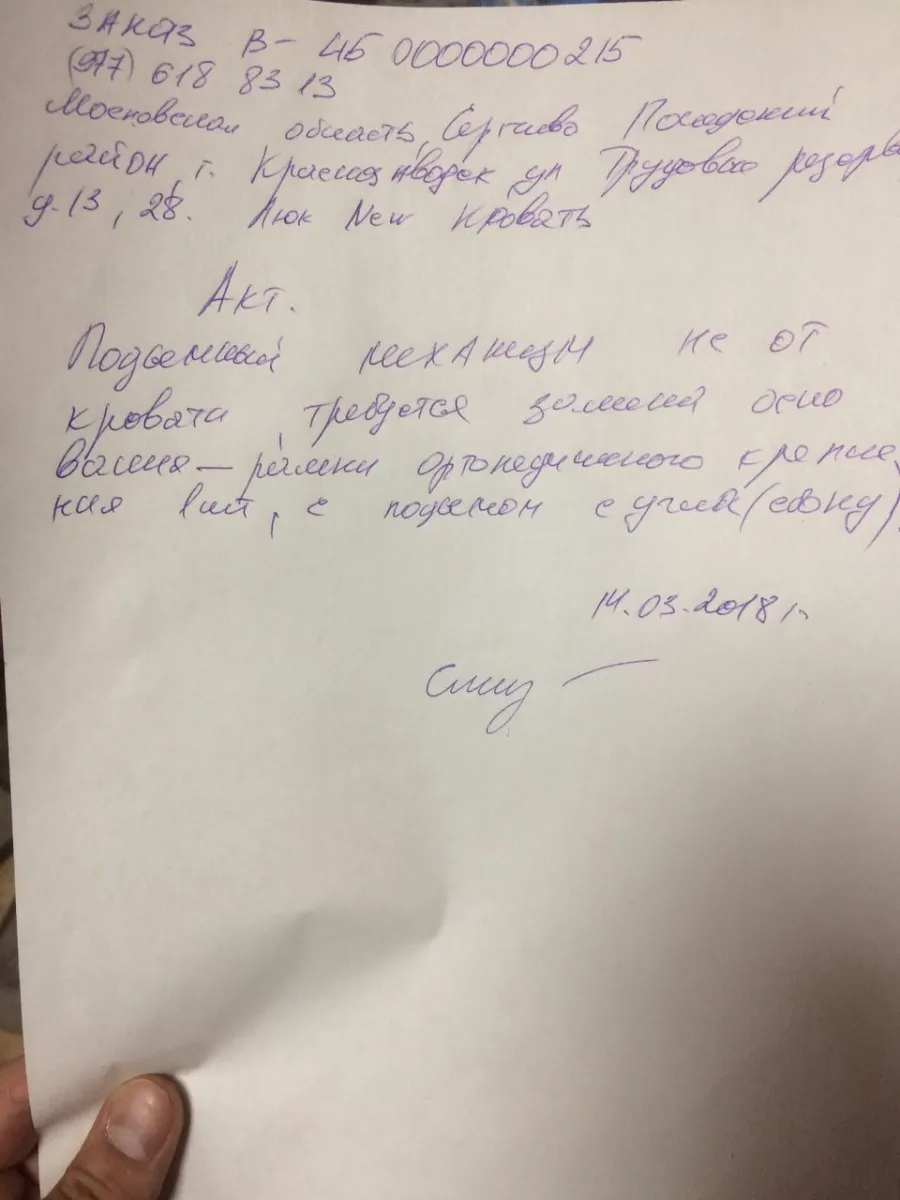 ЗАКАЗ В- 4Б 0000000215
(977) 618 83 13
Московская область, Сергиево Посадский
район, г. Краснозаводск ул Трудовые резерв
д.13, 28. Люк New Кровать
Акт.
Подъемный механизм не от
кровати, требуется замена осно
вания — рамки ортопедичиного крепле
ния 1шт, с подъемом с угла (сбоку).
14.03.2018г.